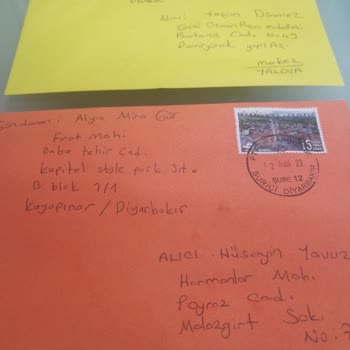 Nuri Yaşin Dönmez
Gazi Osman Paşa mahallesi
Barbaros Cad. No:49
YALOVA
merkez
Gönderen: Alya Mira Gür
Fırat Mahi
Daba şehir Cad.
Kapital style park Sit.
B blok 7/1
Kayapınar / Diyarbakır
15
ŞUBE 12
SURİÇİ DİYARBAKIR
ALICI: Hüseyin Yavuz
Harmanlar Mahi
Poyraz Cad.
Malazgirt Sok.
No: 7